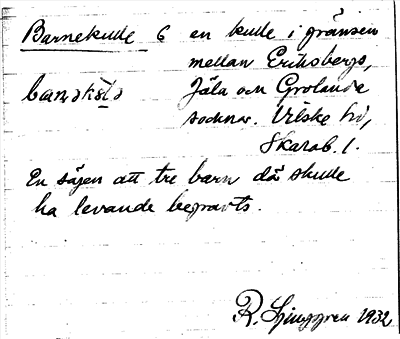 Barnekulle 6 en kulle i gränsen
mellan Eriksbergs,
Jäla och Grolanda
socknar. Vilske hd,
Skarab. l.
En sägen att tre barn då skulle
ha levande begravts.
R. Ljunggren 1932